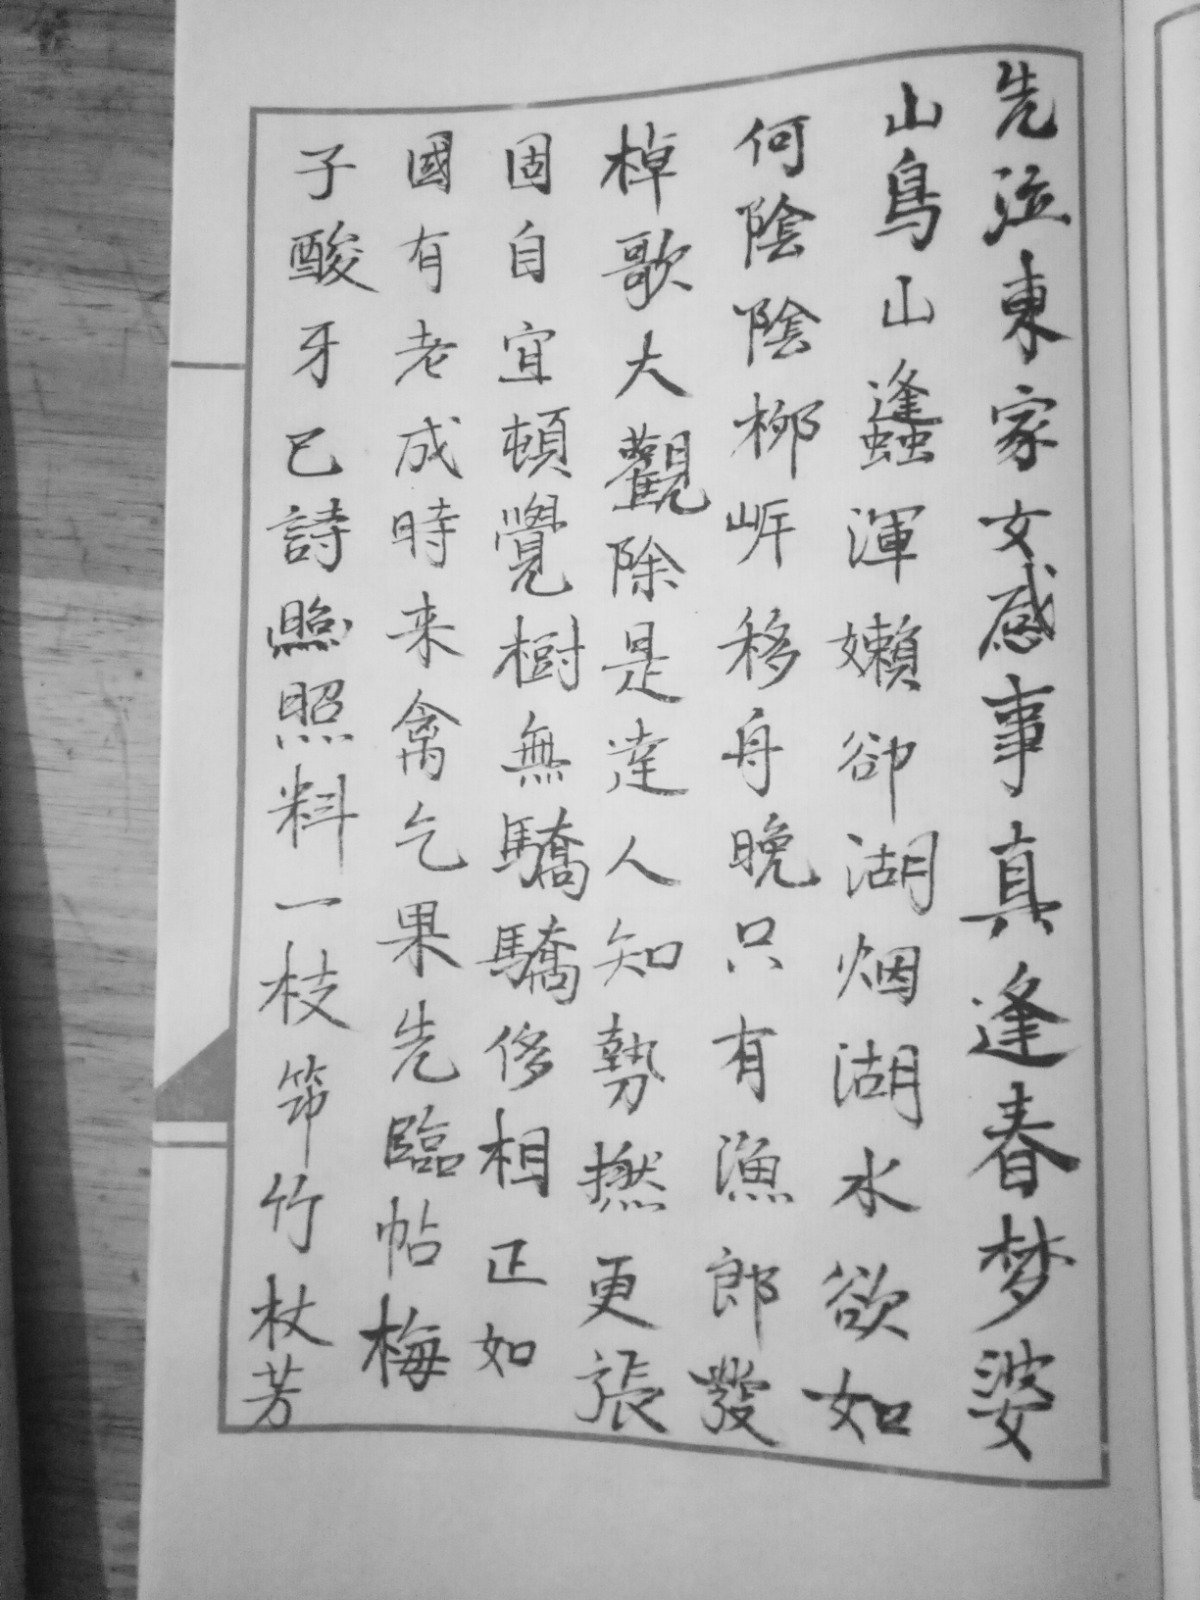 先泣東家女感事真逢春梦婆
山鳥山蠭渾嬾卻湖烟湖水欲如
何陰陰柳岸移舟晚只有漁郎發
棹歌大觀除是達人知勢撚更張
固自宜頓覺樹無驕驕修相正如
國有老成時来禽乞果先臨帖梅
子酸牙已詩照照料一枝笻竹杖芳